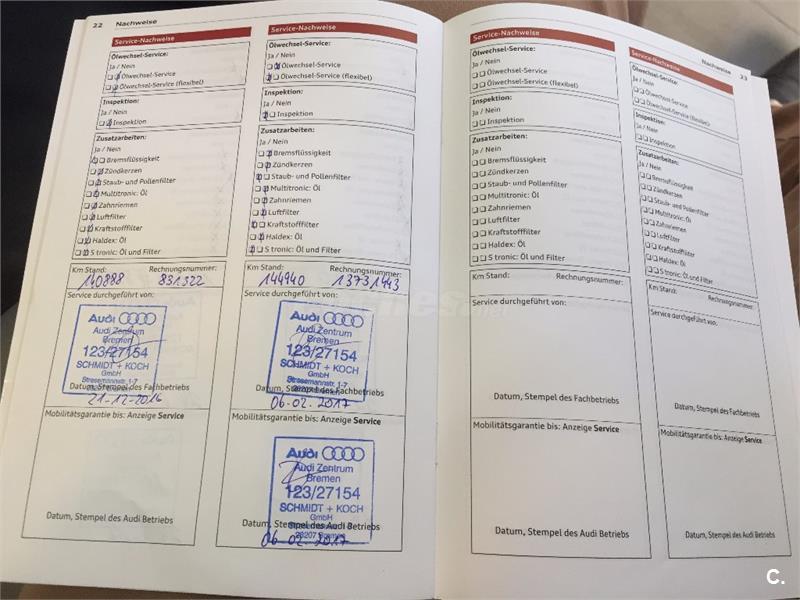 22 Nachweise
Service-Nachweise
Ölwechsel-Service:
Ja / Nein
Ölwechsel-Service
Ölwechsel-Service (flexibel)
Inspektion:
Ja / Nein
Inspektion
Zusatzarbeiten:
Ja / Nein
Bremsflüssigkeit
Zündkerzen
Staub- und Pollenfilter
Multitronic: Öl
Zahnriemen
Luftfilter
Kraftstofffilter
Haldex: Öl
S tronic: Öl und Filter
Km Stand: Rechnungsnummer:
140888 831322
Service durchgeführt von:
Audi
Audi Zentrum
Bremen
123/27154
SCHMIDT + KOCH
GmbH
Stresemannstr. 1-7
Datum, Stempel des Fachbetriebs
21-12-2016
Mobilitätsgarantie bis: Anzeige Service
Datum, Stempel des Audi Betriebs
Service-Nachweise
Ölwechsel-Service:
Ja / Nein
Ölwechsel-Service
Ölwechsel-Service (flexibel)
Inspektion:
Ja / Nein
Inspektion
Zusatzarbeiten:
Ja / Nein
Bremsflüssigkeit
Zündkerzen
Staub- und Pollenfilter
Multitronic: Öl
Zahnriemen
Luftfilter
Kraftstofffilter
Haldex: Öl
S tronic: Öl und Filter
Km Stand: Rechnungsnummer:
144940 13731443
Service durchgeführt von:
Audi
Audi Zentrum
Bremen
123/27154
SCHMIDT + KOCH
GmbH
Stresemannstr. 1-7
Datum, Stempel des Fachbetriebs
06-02-2017
Mobilitätsgarantie bis: Anzeige Service
Audi
Audi Zentrum
Bremen
123/27154
SCHMIDT + KOCH
GmbH
Datum, Stempel des Audi Betriebs
28207 Bremen
06-02-2017
Service-Nachweise
Ölwechsel-Service:
Ja / Nein
Ölwechsel-Service
Ölwechsel-Service (flexibel)
Inspektion:
Ja / Nein
Inspektion
Zusatzarbeiten:
Ja / Nein
Bremsflüssigkeit
Zündkerzen
Staub- und Pollenfilter
Multitronic: Öl
Zahnriemen
Luftfilter
Kraftstofffilter
Haldex: Öl
S tronic: Öl und Filter
Km Stand: Rechnungsnummer:
Service durchgeführt von:
Datum, Stempel des Fachbetriebs
Mobilitätsgarantie bis: Anzeige Service
Datum, Stempel des Audi Betriebs
Nachweise 23
Service-Nachweise
Ölwechsel-Service:
Ja / Nein
Ölwechsel-Service
Ölwechsel-Service (flexibel)
Inspektion:
Ja / Nein
Inspektion
Zusatzarbeiten:
Ja / Nein
Bremsflüssigkeit
Zündkerzen
Staub- und Pollenfilter
Multitronic: Öl
Zahnriemen
Luftfilter
Kraftstofffilter
Haldex: Öl
S tronic: Öl und Filter
Km Stand: Rechnungsnummer:
Service durchgeführt von:
Datum, Stempel des Fachbetriebs
Mobilitätsgarantie bis: Anzeige Service
Datum, Stempel des Audi Betriebs
C.